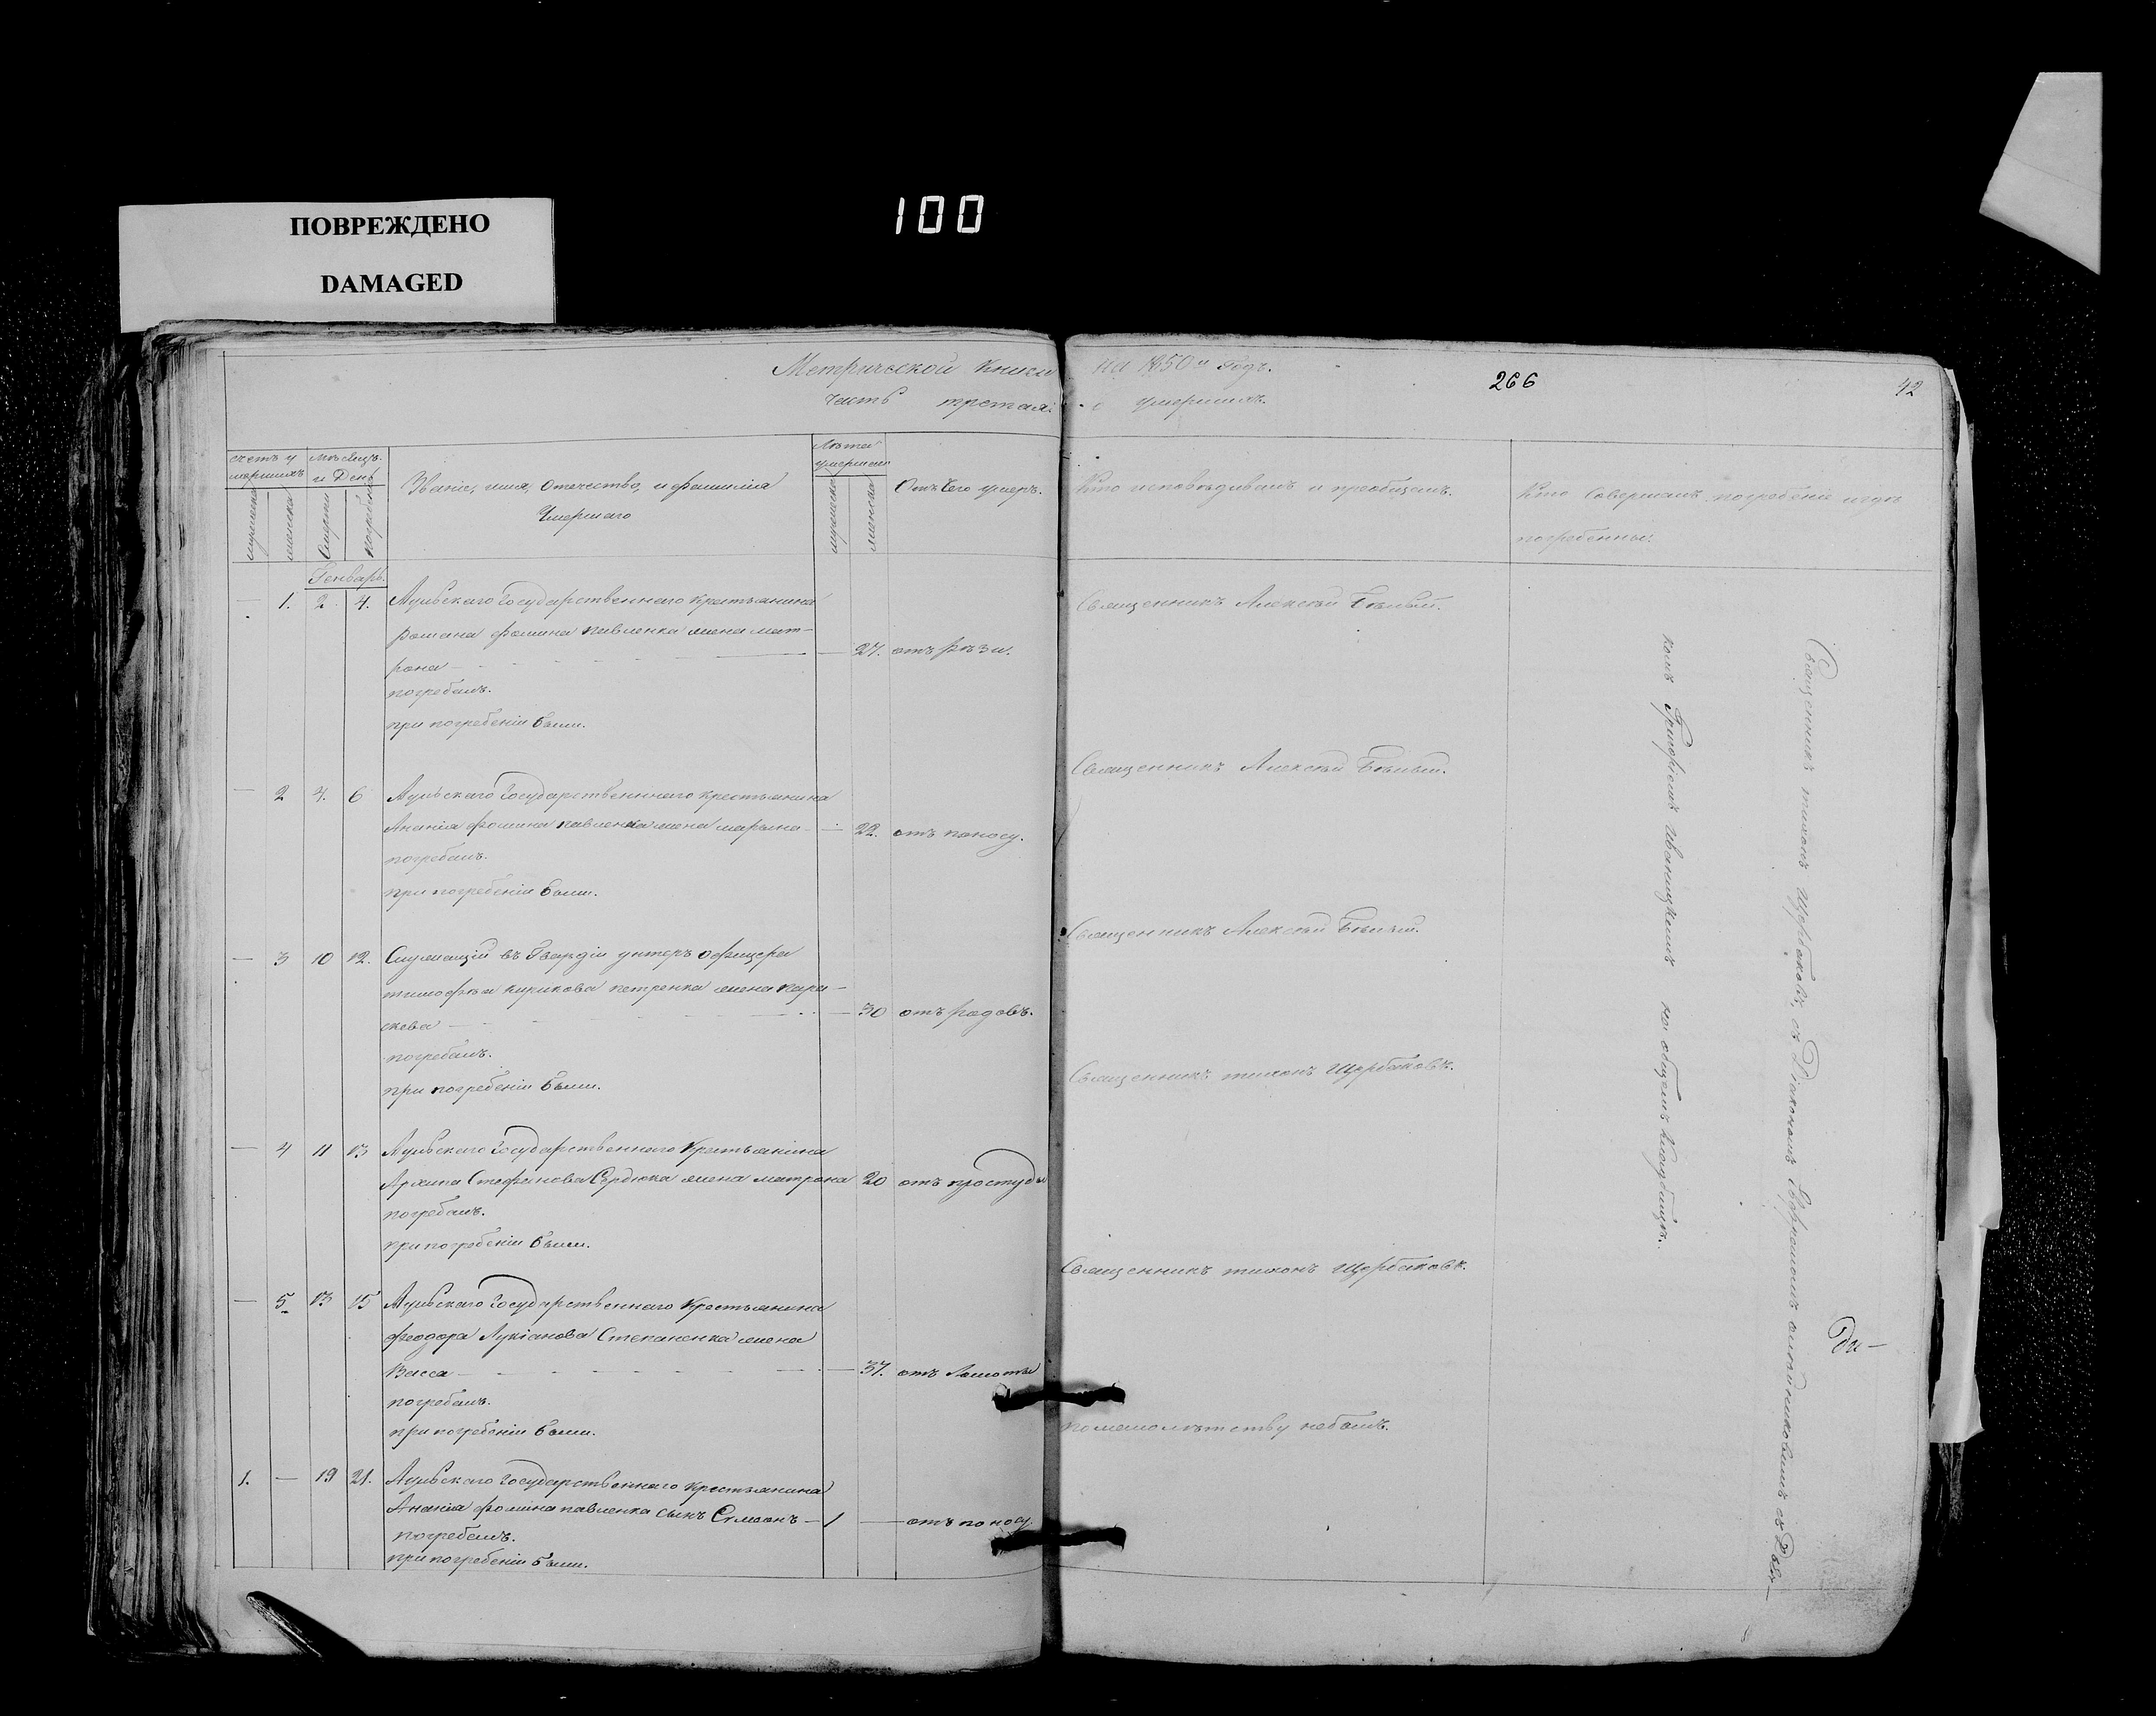 ПОВРЕЖДЕНО
DAMAGED
100
Метрической Книги на 1850й Годъ.
266
42
часть третая: о умершихъ.
счетъ у
мершихъ
мужеска
женска
мѣсяцъ
и День
Смерти
погребенія
Званіе, имя, Отечество, и фамилія
Умершаго
Лѣта
умершаго
мужеска
женска
Отъ Чего умеръ.
Кто исповѣдывалъ и пріобщалъ.
Кто Совершалъ погребеніе игдѣ
погребенны:
Генварь.
— 1. 2. 4. Аульскаго Государственнаго Крестьянина
романа фомина павленка жена мат-
рона — 27. отъ рѣзи.
погребалъ.
при погребеніи были.
Священникъ Алексѣй Бѣлый.
— 2 4. 6 Аульскаго Государственнаго крестьянина
Ананія фомина павленка жена марьяна — 22. отъ поносу.
погребалъ.
при погребеніи были.
Священникъ Алексѣй Бѣлый.
— 3 10 12. Служащій въ Гвардіи унтеръ офицера
тимофѣя кирикова петренка жена пара-
скева — 30 отъ родовъ.
погребалъ.
при погребеніи были.
Священникъ Алексѣй Бѣлый.
— 4 11 13 Аульскаго Государственнаго Крестьянина
Архипа Стефанова Сердюка жена матрона 20 отъ простуды
погребалъ.
при погребеніи были.
Священникъ тихонъ Щербаковъ.
— 5 13 15 Аульскаго Государственнаго Крестьянина
феодора Лукіанова Степаненка жена
Васса — 37. отъ Ломоты
погребалъ.
при погребеніи были.
Священникъ тихонъ Щербаковъ.
1. — 19 21. Аульскаго Государственнаго крестьянина
Ананія фомина павленка сынъ Симеонъ — 1 — отъ поносу.
погребалъ.
при погребеніи были.
помалолѣтству небылъ.
Священникъ тихонъ Щербаковъ, съ Діакономъ Ефремомъ съ
комъ Григоріемъ Иваницкимъ на общемъ Кладбищѣ.